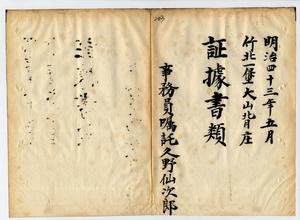 明治四十三年五月
竹北一堡大山背庄
証據書類
事務員囑託久野仙次郎